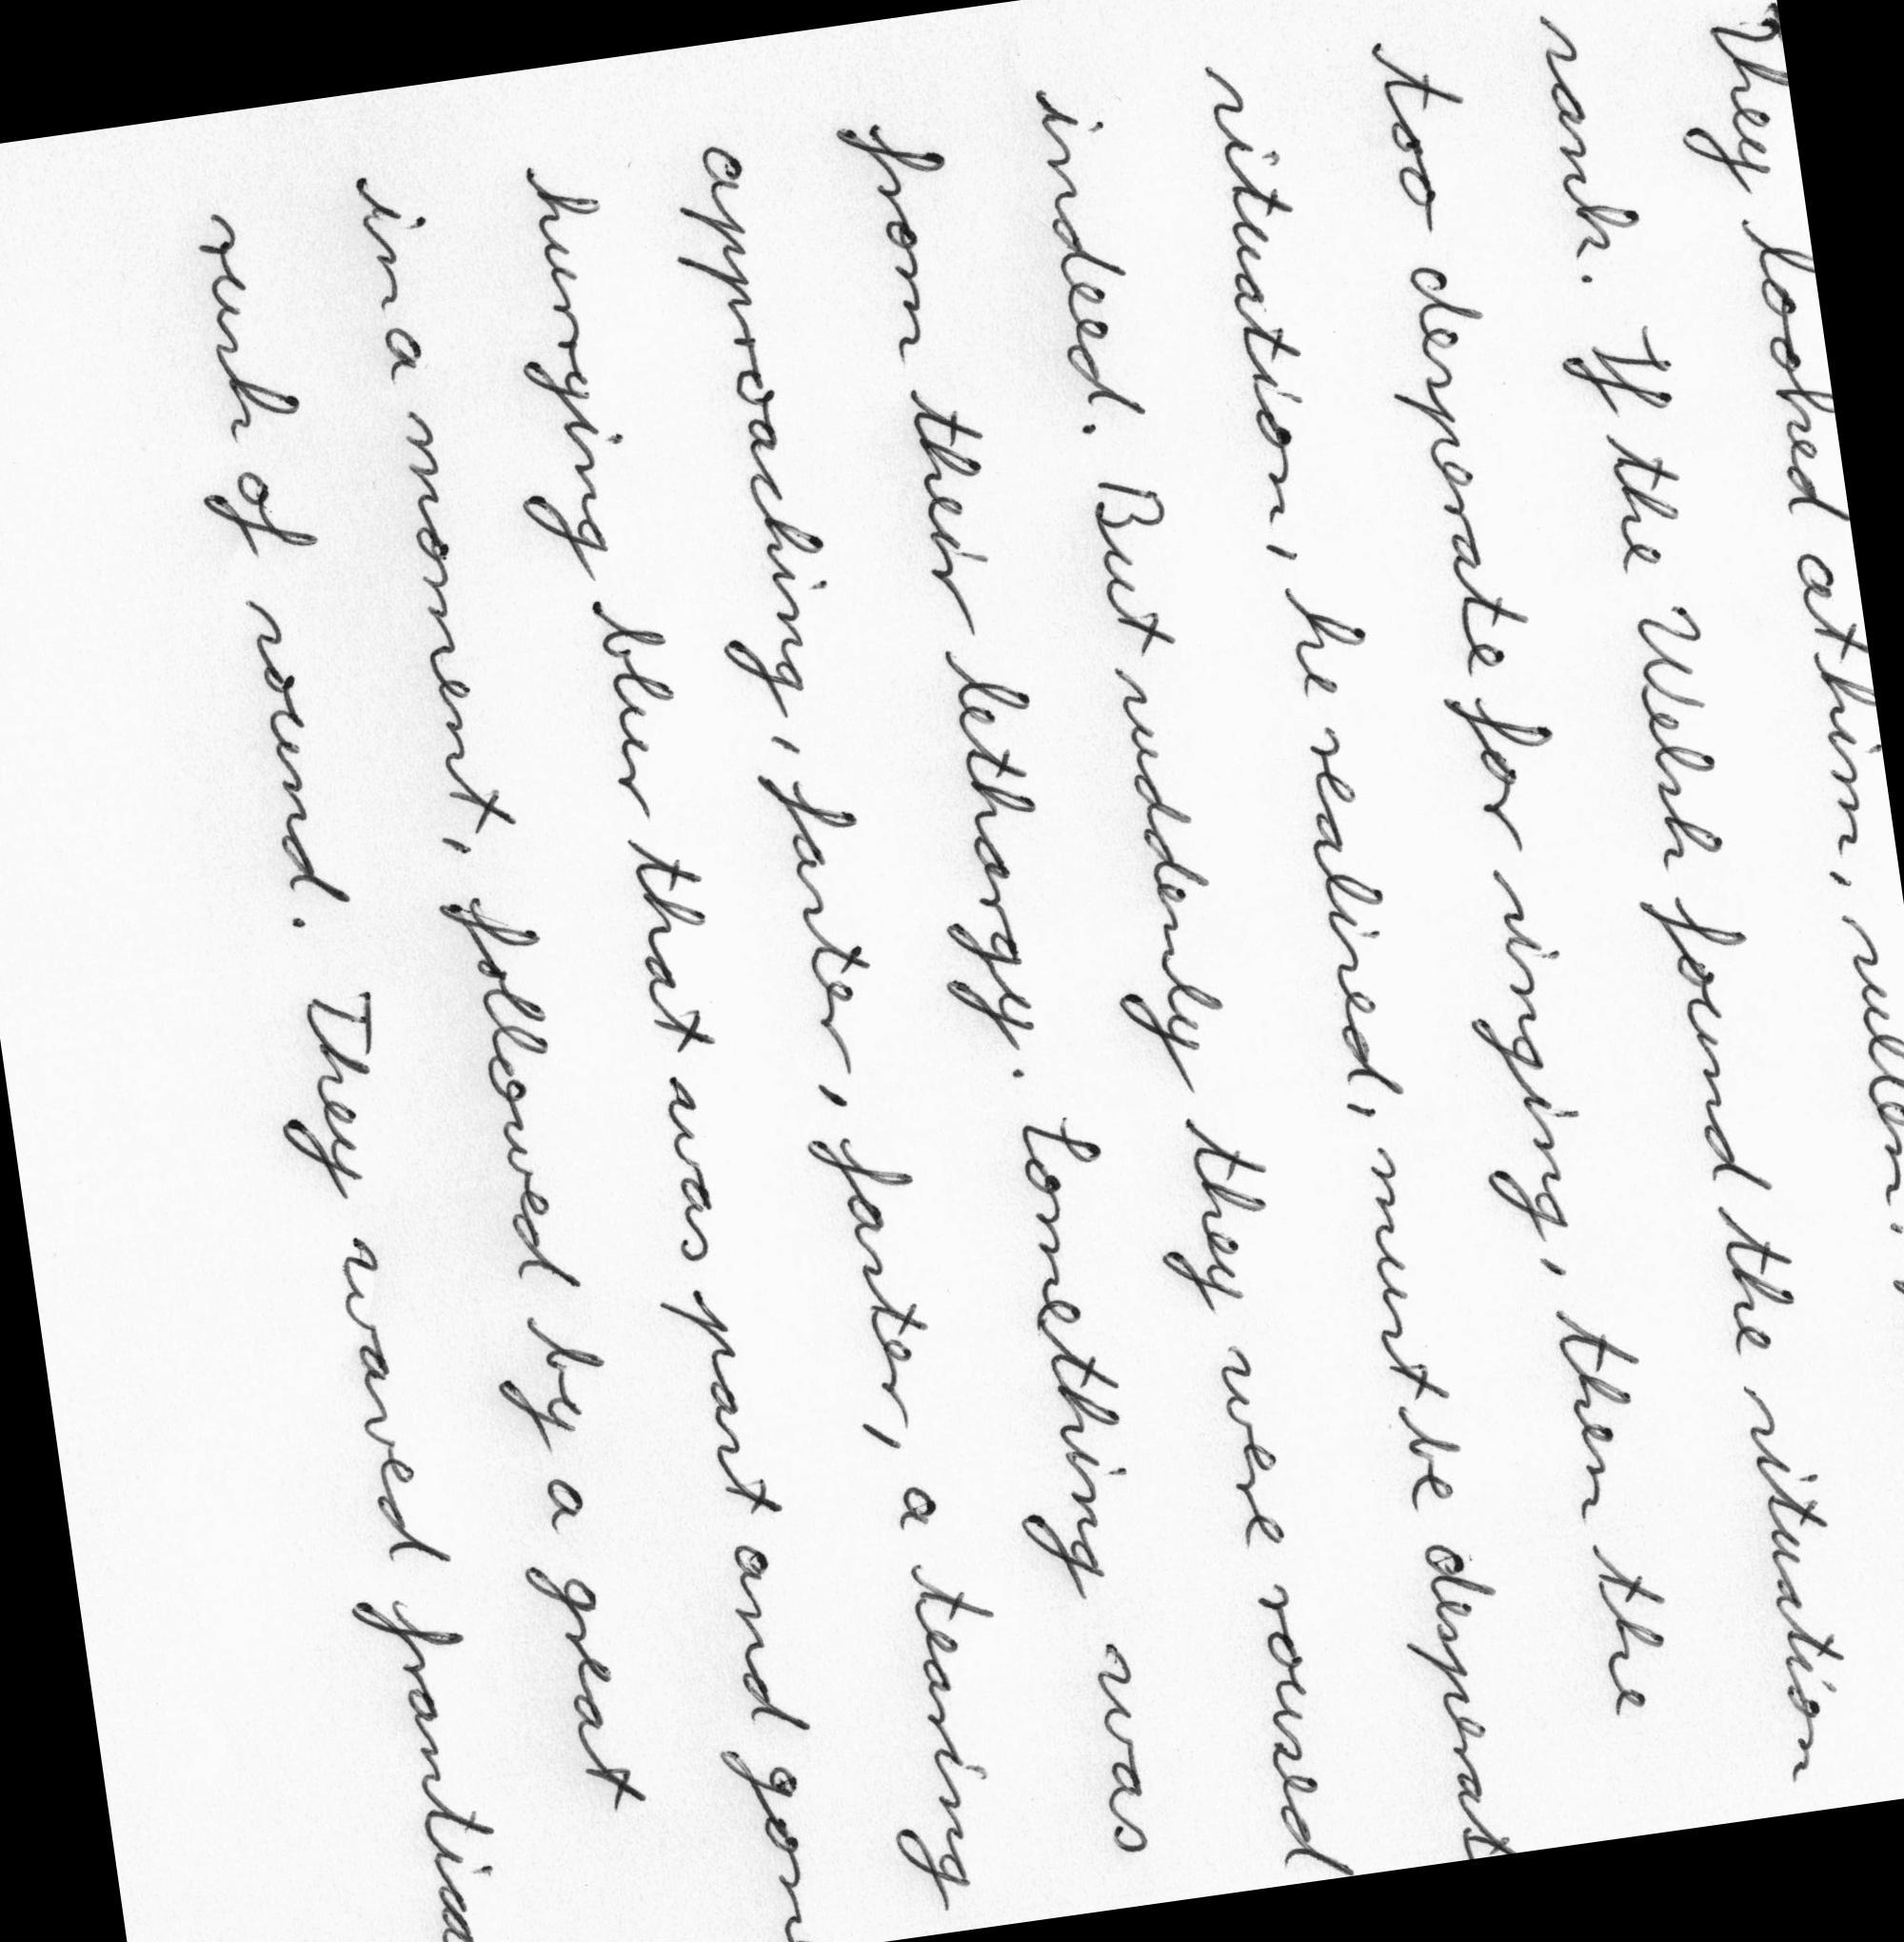 They looked at him, sullen,
sank. If the Welsh found the situation
too desperate for singing, then the
situation, he realised, must be desperat
indeed. But suddenly they were roused
from their lethargy. Something was
approaching, faster, faster, a tearing
hurrying blur that was past and gon
in a moment, followed by a great
rush of sound. They waved frantica